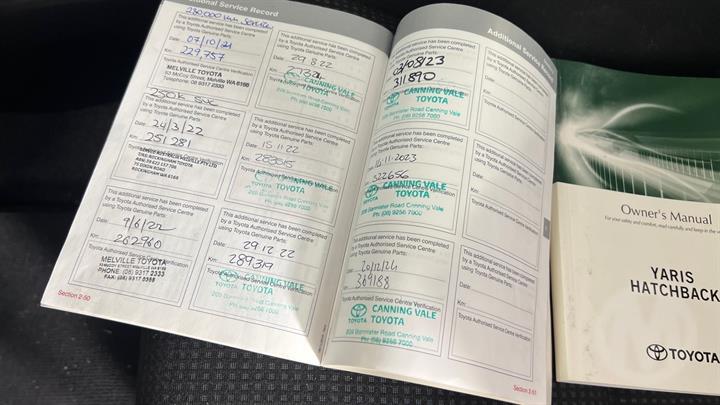 Additional Service Record
230,000 km service
This additional service has been completed
by a Toyota Authorised Service Centre
using Toyota Genuine Parts:
Date: 07/10/21
Km: 229,757
Toyota Authorised Service Centre Verification
MELVILLE TOYOTA
Melville WA 6156
Telephone: 08 9317 2333
250K SVC
This additional service has been completed
by a Toyota Authorised Service Centre
using Toyota Genuine Parts:
Date: 24/3/22
Km: 251 281
Toyota Authorised Service Centre Verification
ROCKINGHAM WA 6168
This additional service has been completed
by a Toyota Authorised Service Centre
using Toyota Genuine Parts:
Date: 9/6/22
Km: 262960
Toyota Authorised Service Centre Verification
MELVILLE TOYOTA
PHONE: (08) 9317 2333
Section 2-50
This additional service has been completed
by a Toyota Authorised Service Centre
using Toyota Genuine Parts:
Date: 29.8.22
Km:
CANNING VALE
TOYOTA
Ph: (08) 9256 7000
This additional service has been completed
by a Toyota Authorised Service Centre
using Toyota Genuine Parts:
Date: 15.11.22
Km: 283515
CANNING VALE
TOYOTA
This additional service has been completed
by a Toyota Authorised Service Centre
using Toyota Genuine Parts:
Date: 29.12.22
Km: 289319
CANNING VALE
TOYOTA
Additional Service Record
This additional service has been completed
by a Toyota Authorised Service Centre
using Toyota Genuine Parts:
03/08/23
311890
CANNING VALE
TOYOTA
208 Bannister Road Canning Vale
Ph: (08) 9256 7000
This additional service has been completed
by a Toyota Authorised Service Centre
using Toyota Genuine Parts:
16.11.2023
322656
CANNING VALE
TOYOTA
208 Bannister Road Canning Vale
Ph: (08) 9256 7000
This additional service has been completed
by a Toyota Authorised Service Centre
using Toyota Genuine Parts:
Date: 20/12/24
Km: 369188
Toyota Authorised Service Centre Verification
CANNING VALE
TOYOTA TOYOTA
208 Bannister Road Canning Vale
Ph: (08) 9256 7000
This additional service has been completed
by a Toyota Authorised Service Centre
using Toyota Genuine Parts:
Date:
Km:
Toyota Authorised Service Centre Verification
This additional service has been completed
by a Toyota Authorised Service Centre
using Toyota Genuine Parts:
Date:
Km:
Toyota Authorised Service Centre Verification
This additional service has been completed
by a Toyota Authorised Service Centre
using Toyota Genuine Parts:
Date:
Km:
Toyota Authorised Service Centre Verification
Section 2-51
Owner's Manual
YARIS
HATCHBACK
TOYOTA